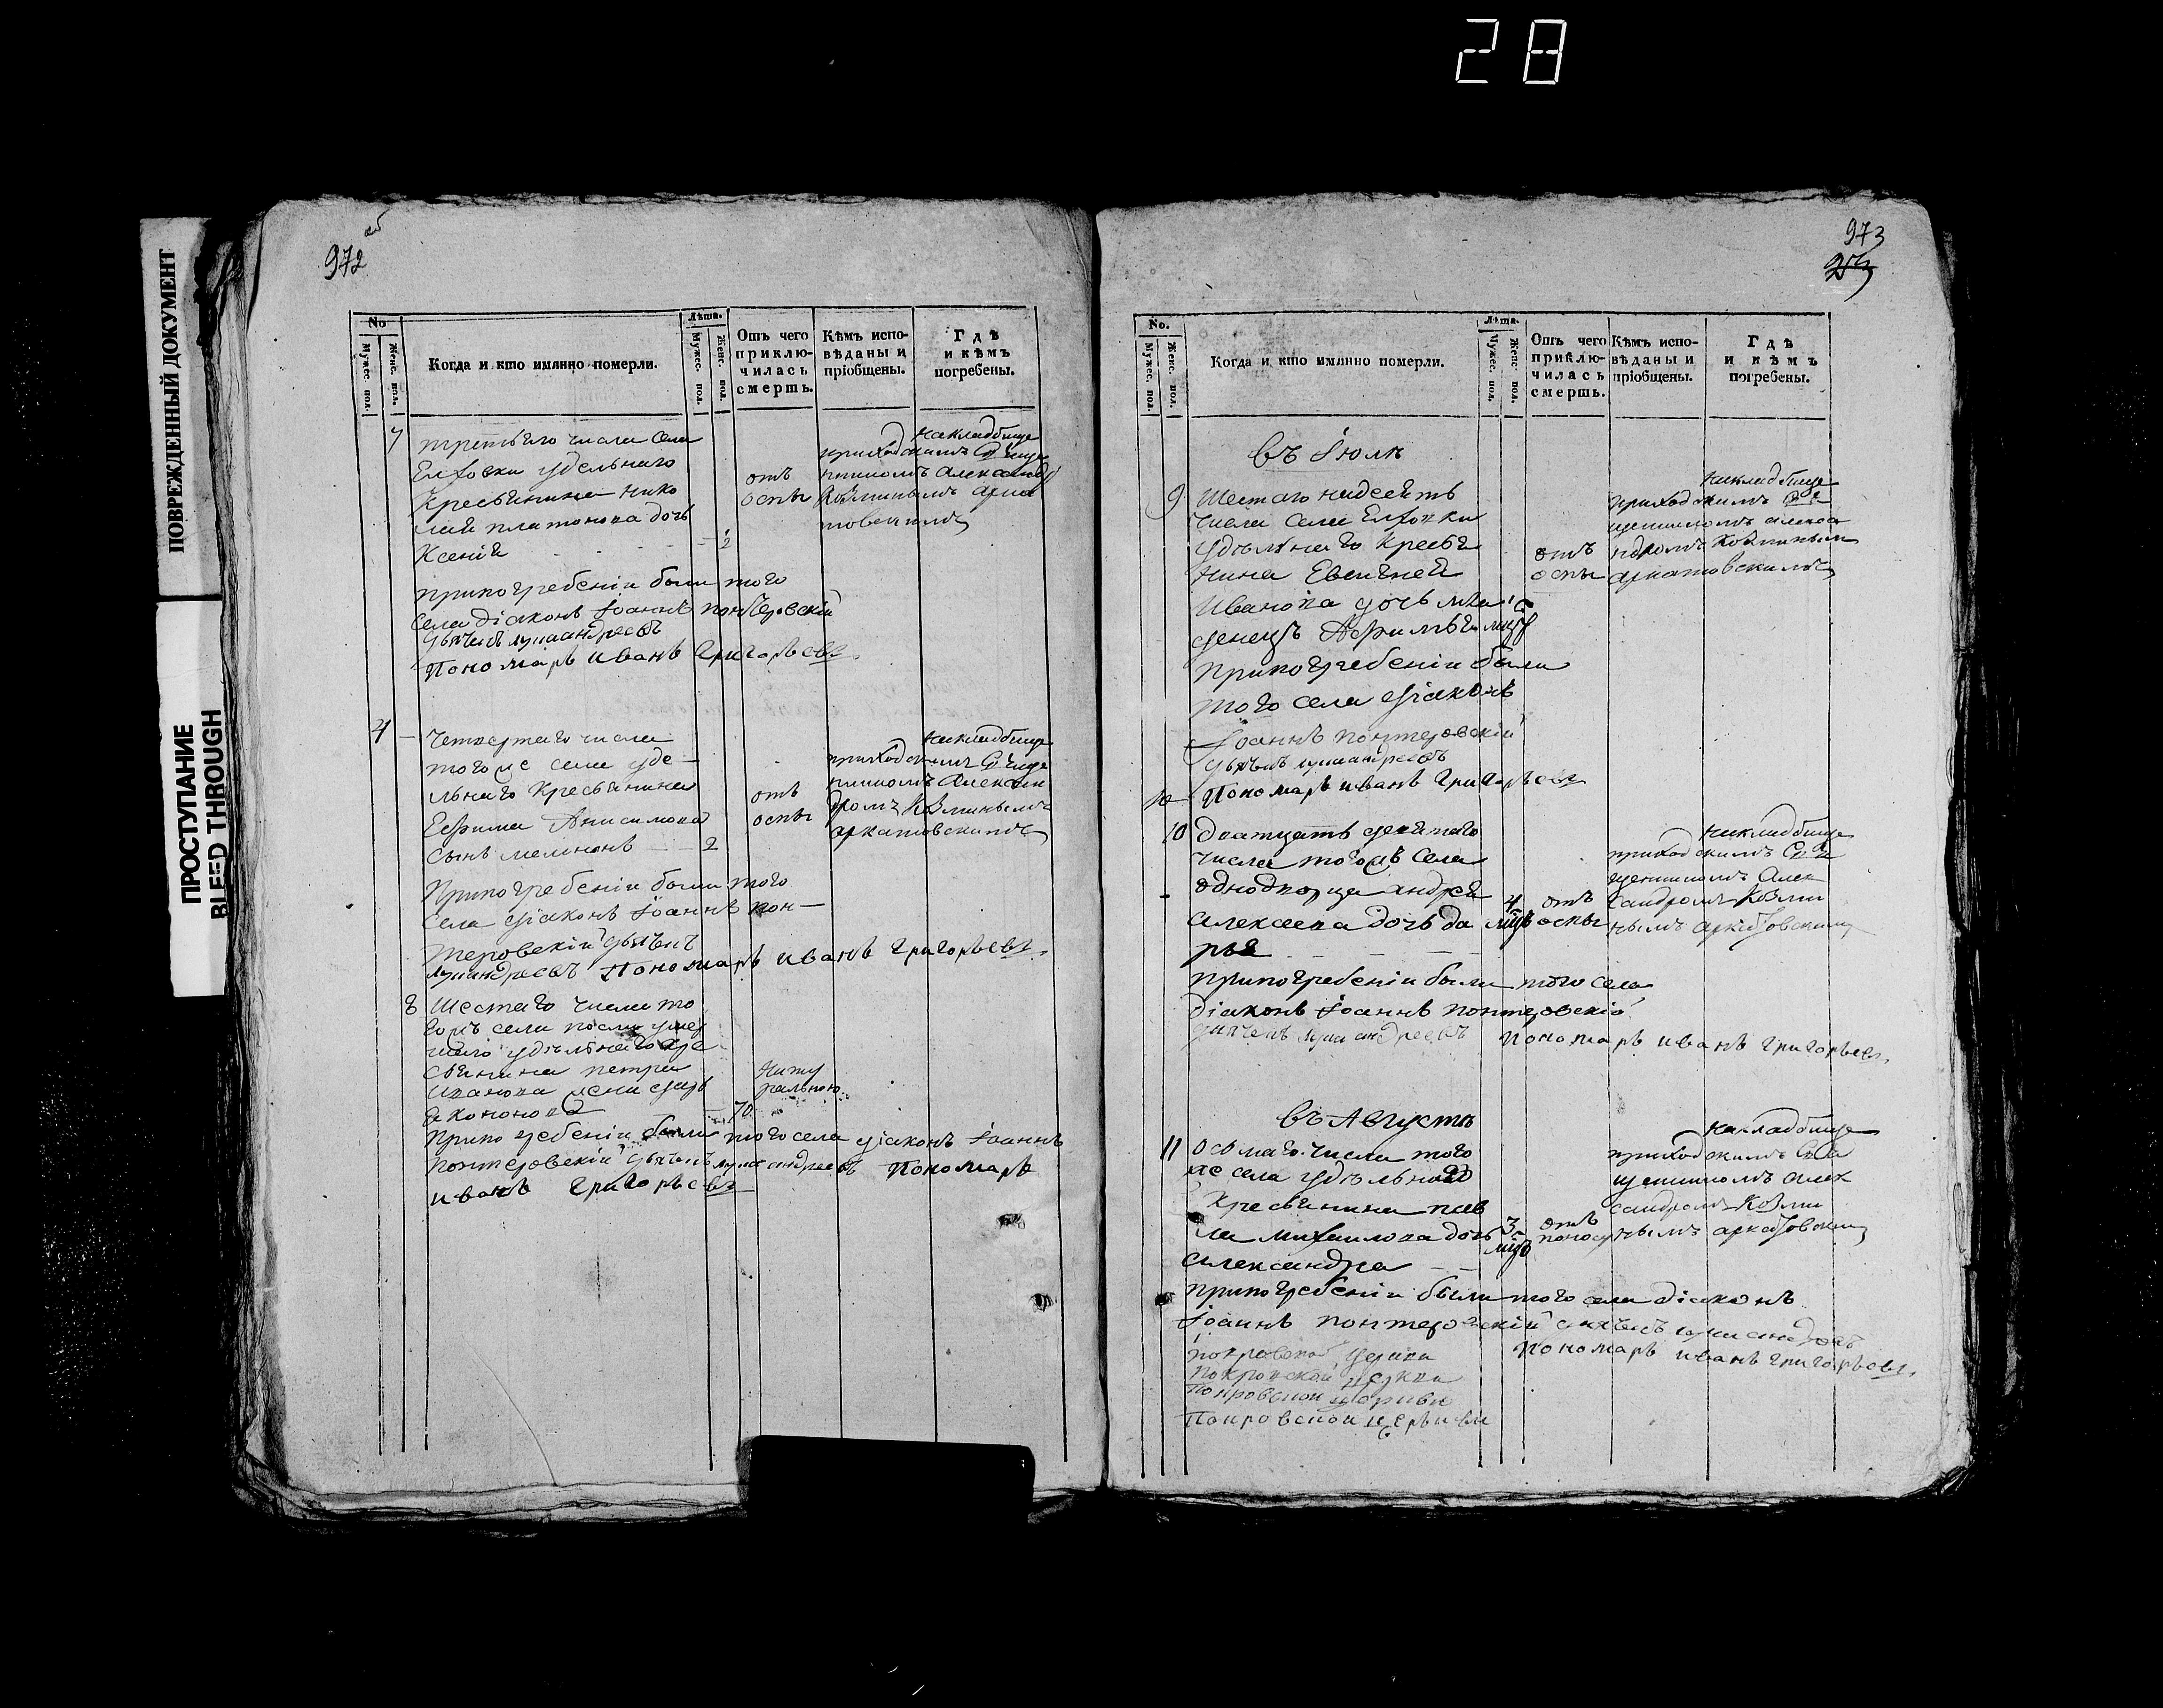 28
ПОВРЕЖДЕННЫЙ ДОКУМЕНТ
ПРОСТУПАНИЕ
BLEED THROUGH
972 об
No
Мужес. пол.
Женс. пол.
Когда и кто имянно померли.
Лѣта.
Мужес. пол.
Женс. пол.
Отъ чего приклю-
чилась смерть.
Кѣмъ испо-
вѣданы и
пріобщены.
Гдѣ
и кѣмъ
погребены.
7 третьяго числа села
Елховки удельнаго
Кресьянина нико
лая платонова дочь
Ксенія 2
отъ
оспы
накладбище
приходскимъ
Александ
При погребеніи были того
села діаконъ Іоаннъ понтеровскій
Пономарь иванъ Григорьевъ
4 четвертаго числа
тогоже села уде
льнаго кресьянина
Ефима Анисимова
сынъ мемнонъ 2
отъ
оспы
накладбище
приходскимъ
Алексан
дромъ Козминымъ
аркатовскимъ
При погребеніи были того
села діаконъ Іоаннъ пон
теровскій дьячекъ
Пономарь иванъ григорьевъ
8 Шестаго числа то
гожъ села после умер
шаго удѣльнаго кре
сьянина петра
иванова жена дарь
я кононова 70
нату
ральною
При погребеніи были того села діаконъ Іоаннъ
понтеровскій дьячекъ Пономарь
иванъ Григорьевъ
973
No.
Мужес. пол.
Женс. пол.
Когда и кто имянно померли.
Лѣта.
Мужес. пол.
Женс. пол.
Отъ чего
приклю-
чилась
смерть.
Кѣмъ испо-
вѣданы и
пріобщены.
Гдѣ
и кѣмъ
погребены.
въ Іюлѣ
9 Шестаго надесять
числа села Елховки
удѣльнаго кресья
нина Евсигнея
Иванова дочь мла
денецъ
отъ
оспы
накладбище
приходскимъ
щенникомъ алекса
ндромъ Козминымъ
аркатовскимъ
При погребеніи были
того села діаконъ
Іоаннъ понтеровскій
Пономарь иванъ Григорьевъ
10 дватцать девятаго
числа тогожъ села
однодворца андрея
Алексеева дочь да
рья
4
мцъ
отъ
оспы
накладбище
приходскимъ
щенникомъ Алек
сандромъ Козми
нымъ
При погребеніи были того села
діаконъ Іоаннъ понтеровскій
Пономарь иванъ григорьевъ
въ Августѣ
11 осьмаго числа того
же села удѣльнаго
кресьянина пав
ла михаилова дочь
Александра
3
мцъ
отъ
поносу
накладбище
приходскимъ
щенникомъ алек
сандромъ Козми
нымъ
При погребеніи были того села діаконъ
Іоаннъ понтеровскій
Пономарь иванъ григорьевъ
покровской церкви
покровской церкви
покровской церкви
Покровской церькви